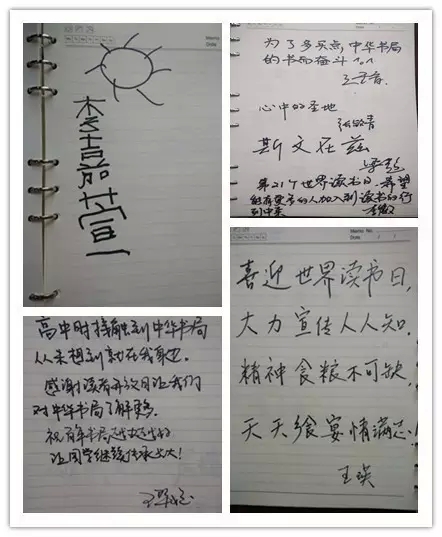 为了多买点，中华书局
的书而奋斗
心中的圣地
张敬青
斯文在兹
第21个世界读书日，希望
能有更多的人加入到读书的行
列中来
高中时接触到中华书局
从未想到就在我身边。
感谢读者开放日让我们
对中华书局了解更多。
祝百年书局越来越好
让国学继续传承光大！
喜迎世界读书日，
大力宣传人人知。
精神食粮不可缺，
天天飨宴情满志！
王瑛